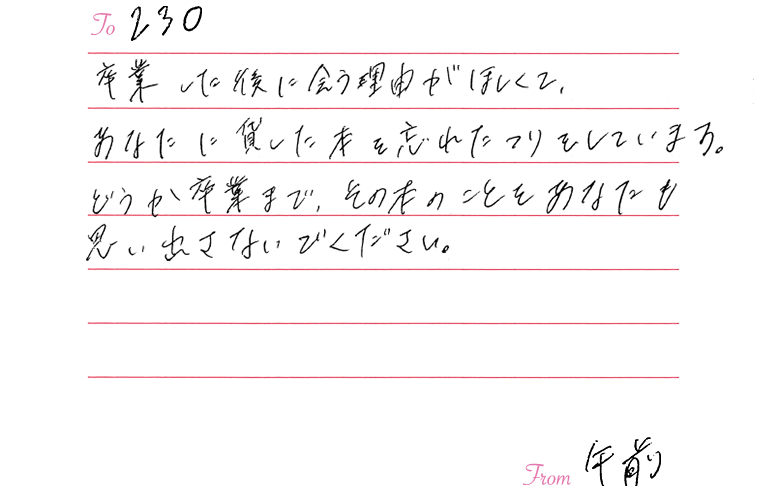 To 230
卒業した後に会う理由がほしくて、
あなたに貸した本を忘れたフリをしています。
どうか卒業まで、その本のことをあなたも
思い出さないでください。
From 午前